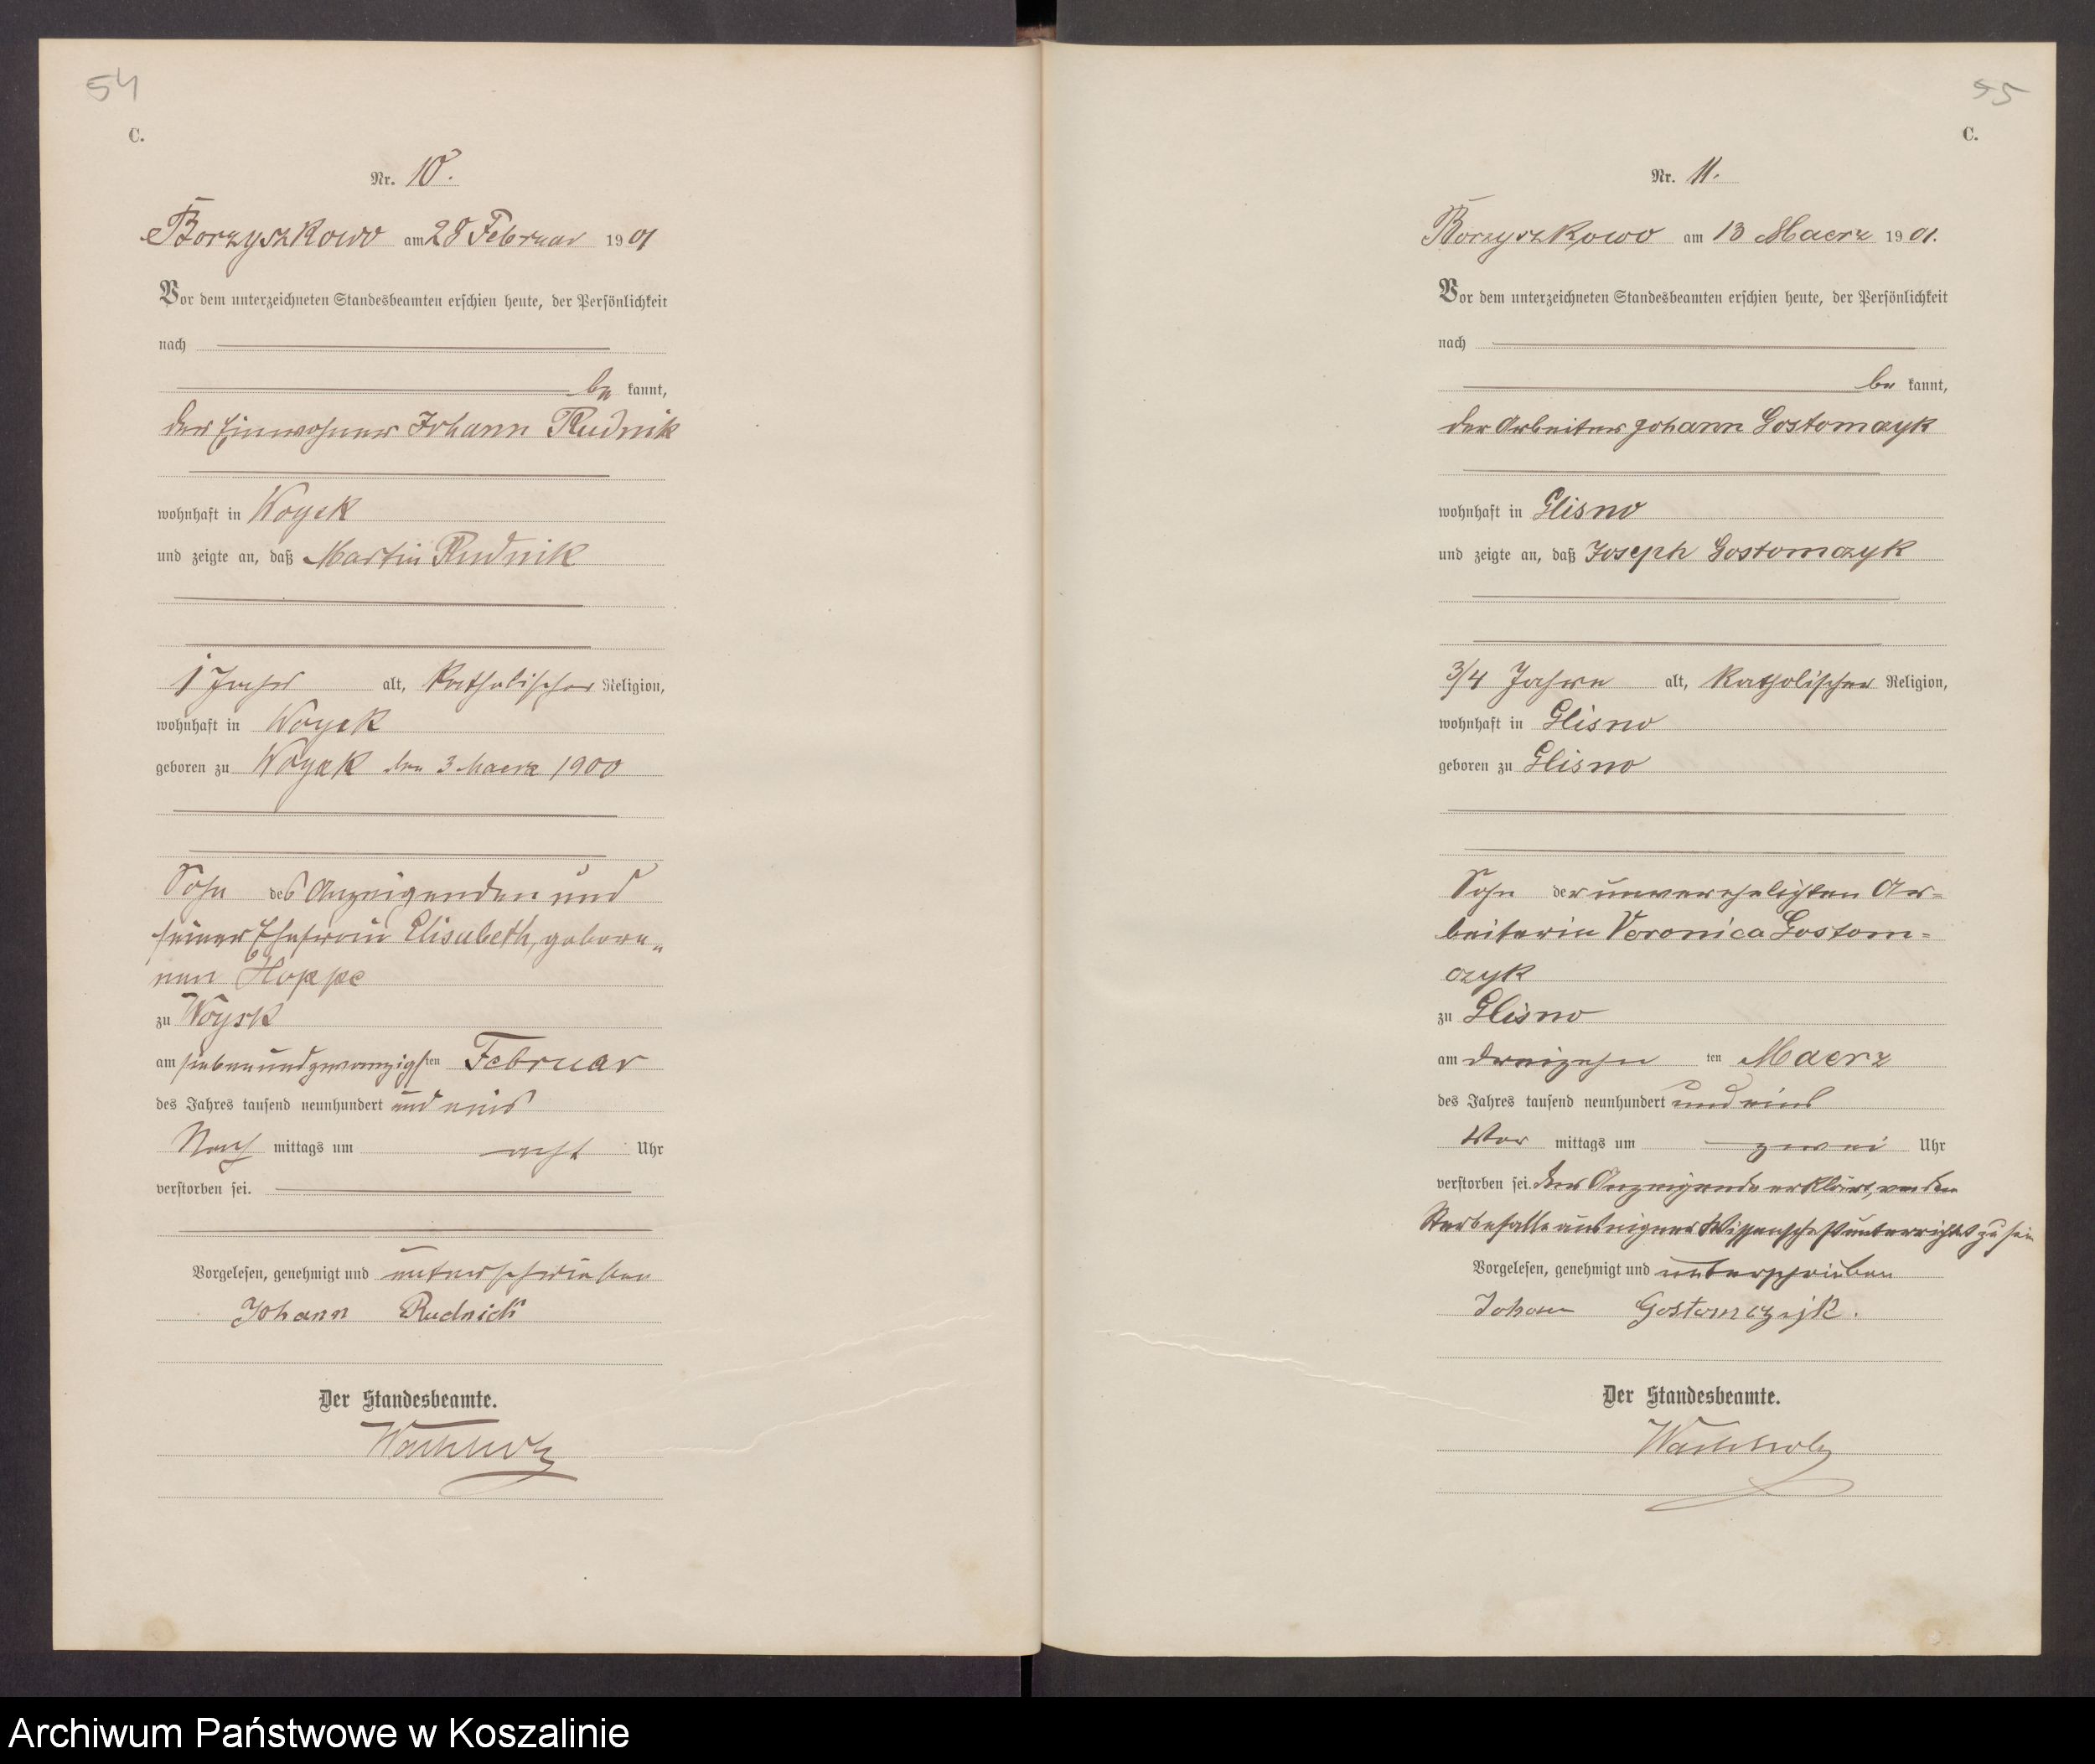 54
C.
Nr. 10.
Borzyszkowo am 28 Februar 1901
Vor dem unterzeichneten Standesbeamten erschien heute, der Persönlichkeit
nach
be kannt,
der Einwohner Johann Rudnik
wohnhaft in Woysk
und zeigte an, daß Martin Rudnik
1 Jahr alt, katholischer Religion,
wohnhaft in Woysk
geboren zu Woysk den 3 Maerz 1900
Sohn des Anzeigenden und
seiner Ehefrau Elisabeth, gebore„
nen Hoppe
zu Woysk
am siebenundzwanzigsten Februar
des Jahres tausend neunhundert und eins
Nach mittags um acht Uhr
verstorben sei.
Vorgelesen, genehmigt und unterschrieben
Johann Rudnick
Der Standesbeamte.
55
C.
Nr. 11.
Borzyszkowo am 13 Maerz 1901.
Vor dem unterzeichneten Standesbeamten erschien heute, der Persönlichkeit
nach
be kannt,
der Arbeiter Johann Gostomzyk
wohnhaft in Glisno
und zeigte an, daß Joseph Gostomczyk
3/4 Jahre alt, katholischer Religion,
wohnhaft in Glisno
geboren zu Glisno
Sohn der unverehelichten Ar-
beiterin Veronica Gostom-
czyk
zu Glisno
am dreizehn ten Maerz
des Jahres tausend neunhundert und eins
Vor mittags um zwei Uhr
verstorben sei. Der Anzeigende erklärt, von dem
Sterbefalle aus eigner Wissenschaft unterrichtet zu sein
Vorgelesen, genehmigt und unterschrieben
Johann Gostomczyk.
Der Standesbeamte.
Archiwum Państwowe w Koszalinie